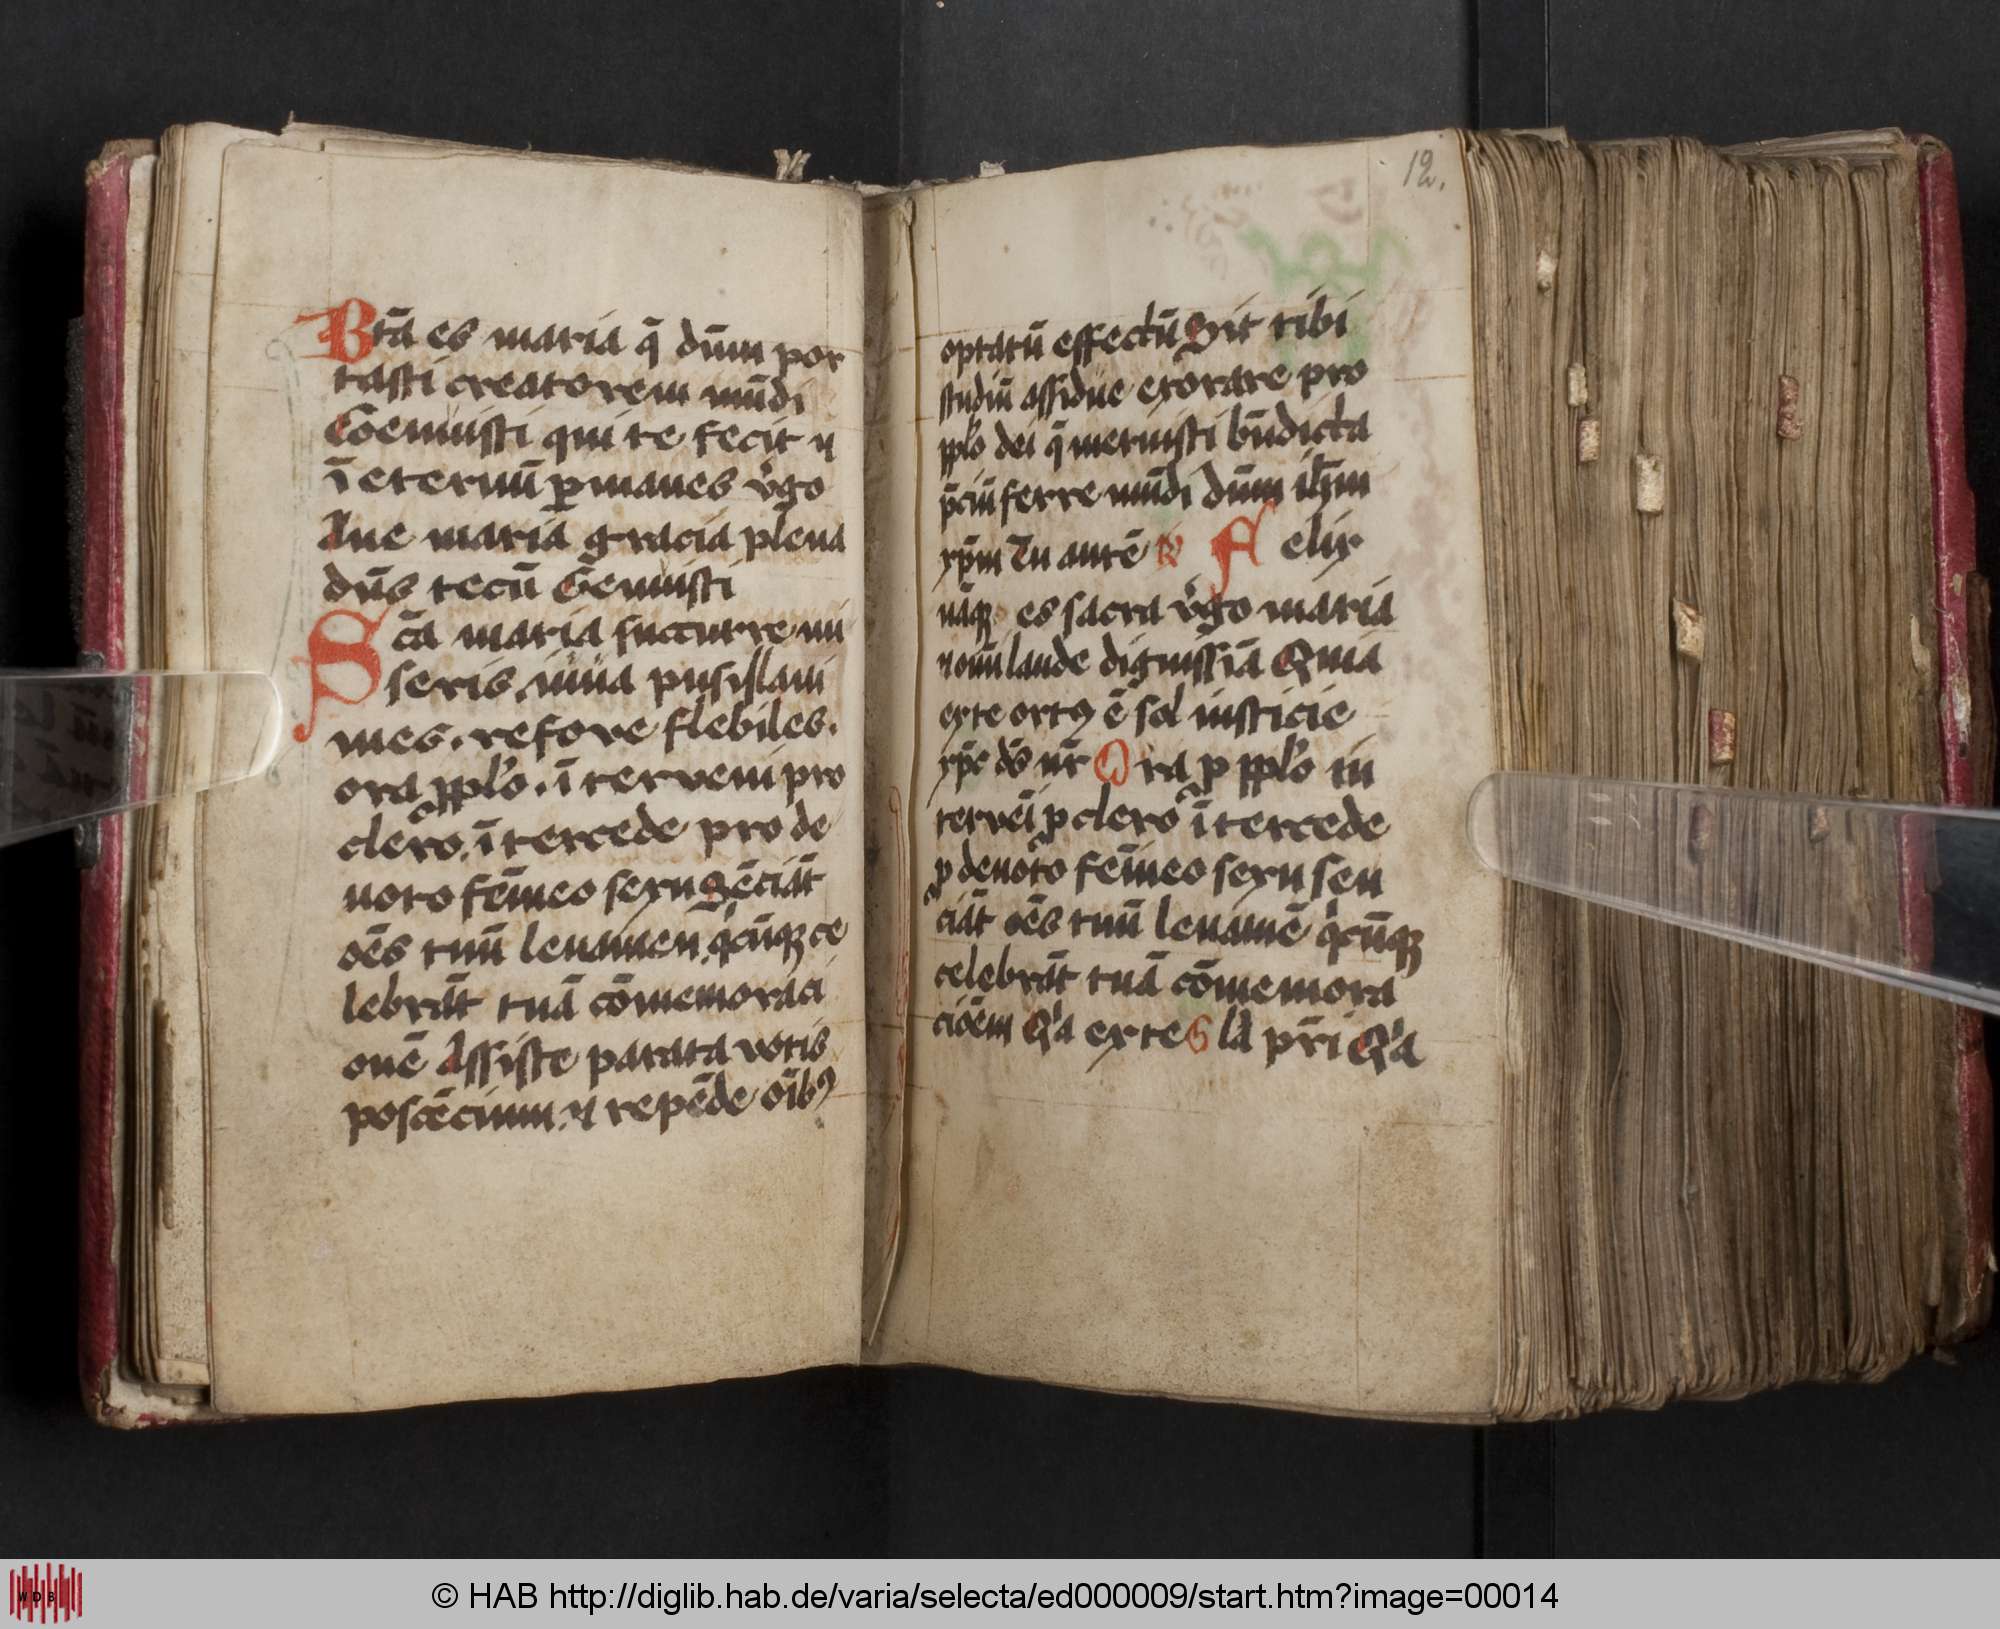 Btā es maria q̄ dn̄m por
tasti creatorem mūdi
Geenuisti qui te fecit ⁊
ī eternū ꝑmanes v̓go
Aue maria gracia plena
dn̄s tecū Genuisti
Scā maria succurre mi
seris iuua pusillani
mes. refove flebiles.
ora p pplo. ī terveni pro
clero. ī tercede pro de
uoto femīeo sexu Sēciāt
oēs tuū leuamen qͥcūqꝫ ce
lebrāt tuā cōmemoraci
onē Assiste parata votis
poscēcium. ⁊ repēde oībꝰ
12.
optatū effectū Sit tibi
studiū assidue exorare pro
pplo dei q̄ meruisti bn̄dicta
p̄ciū ferre mūdi dn̄m ihm̄
xp̄m Tu autē ℟ Felix
nāqꝫ es sacra v̓go maria
⁊ oīn̄ laude dignissīa Quia
ex te ortꝰ ē sol iusticie
xp̄c dꝰ nr̄ Ora p pplo in
terveī p clero ī tercede
p deuoto femīeo sexu sen
ciāt oēs tuū leuamē qͥcūqꝫ
celebrāt tuā cōmemora
cioēm Qͥa ex te Gla pr̄i Qͥa
© HAB http://diglib.hab.de/varia/selecta/ed000009/start.htm?image=00014
WDB